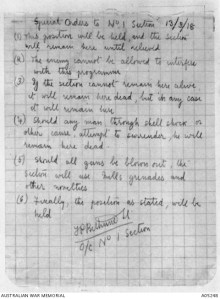 Special Orders to No 1 Section 13/3/18
(1) This position will be held, and the section
will remain here until relieved
(2) The enemy cannot be allowed to interfere
with this programme
(3) If the section cannot remain here alive
it will remain here dead, but in any case
it will remain here
(4) Should any man through shell shock or
other cause, attempt to surrender, he will
remain here dead
(5) Should all guns be blown out, the
section will use Mills grenades and
other novelties
(6) Finally, the position as stated, will be
held
F P Bethune Lt
O/C No 1 Section
AUSTRALIAN WAR MEMORIAL